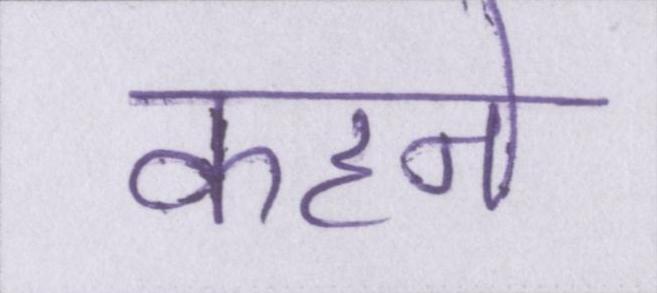 कहने